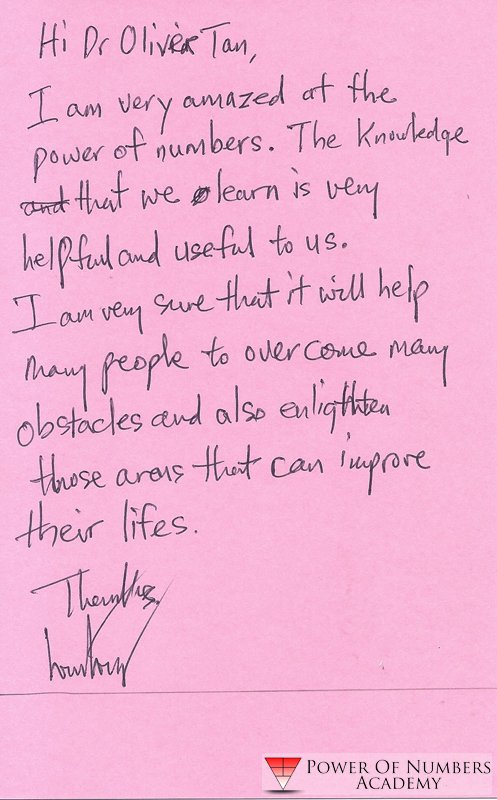 Hi Dr Oliver Tan,
I am very amazed at the
power of numbers. The Knowledge
and that we learn is very
helpful and useful to us.
I am very sure that it will help
many people to overcome many
obstacles and also enlighten
those areas that can improve
their lifes.
Thanks.
POWER OF NUMBERS
ACADEMY